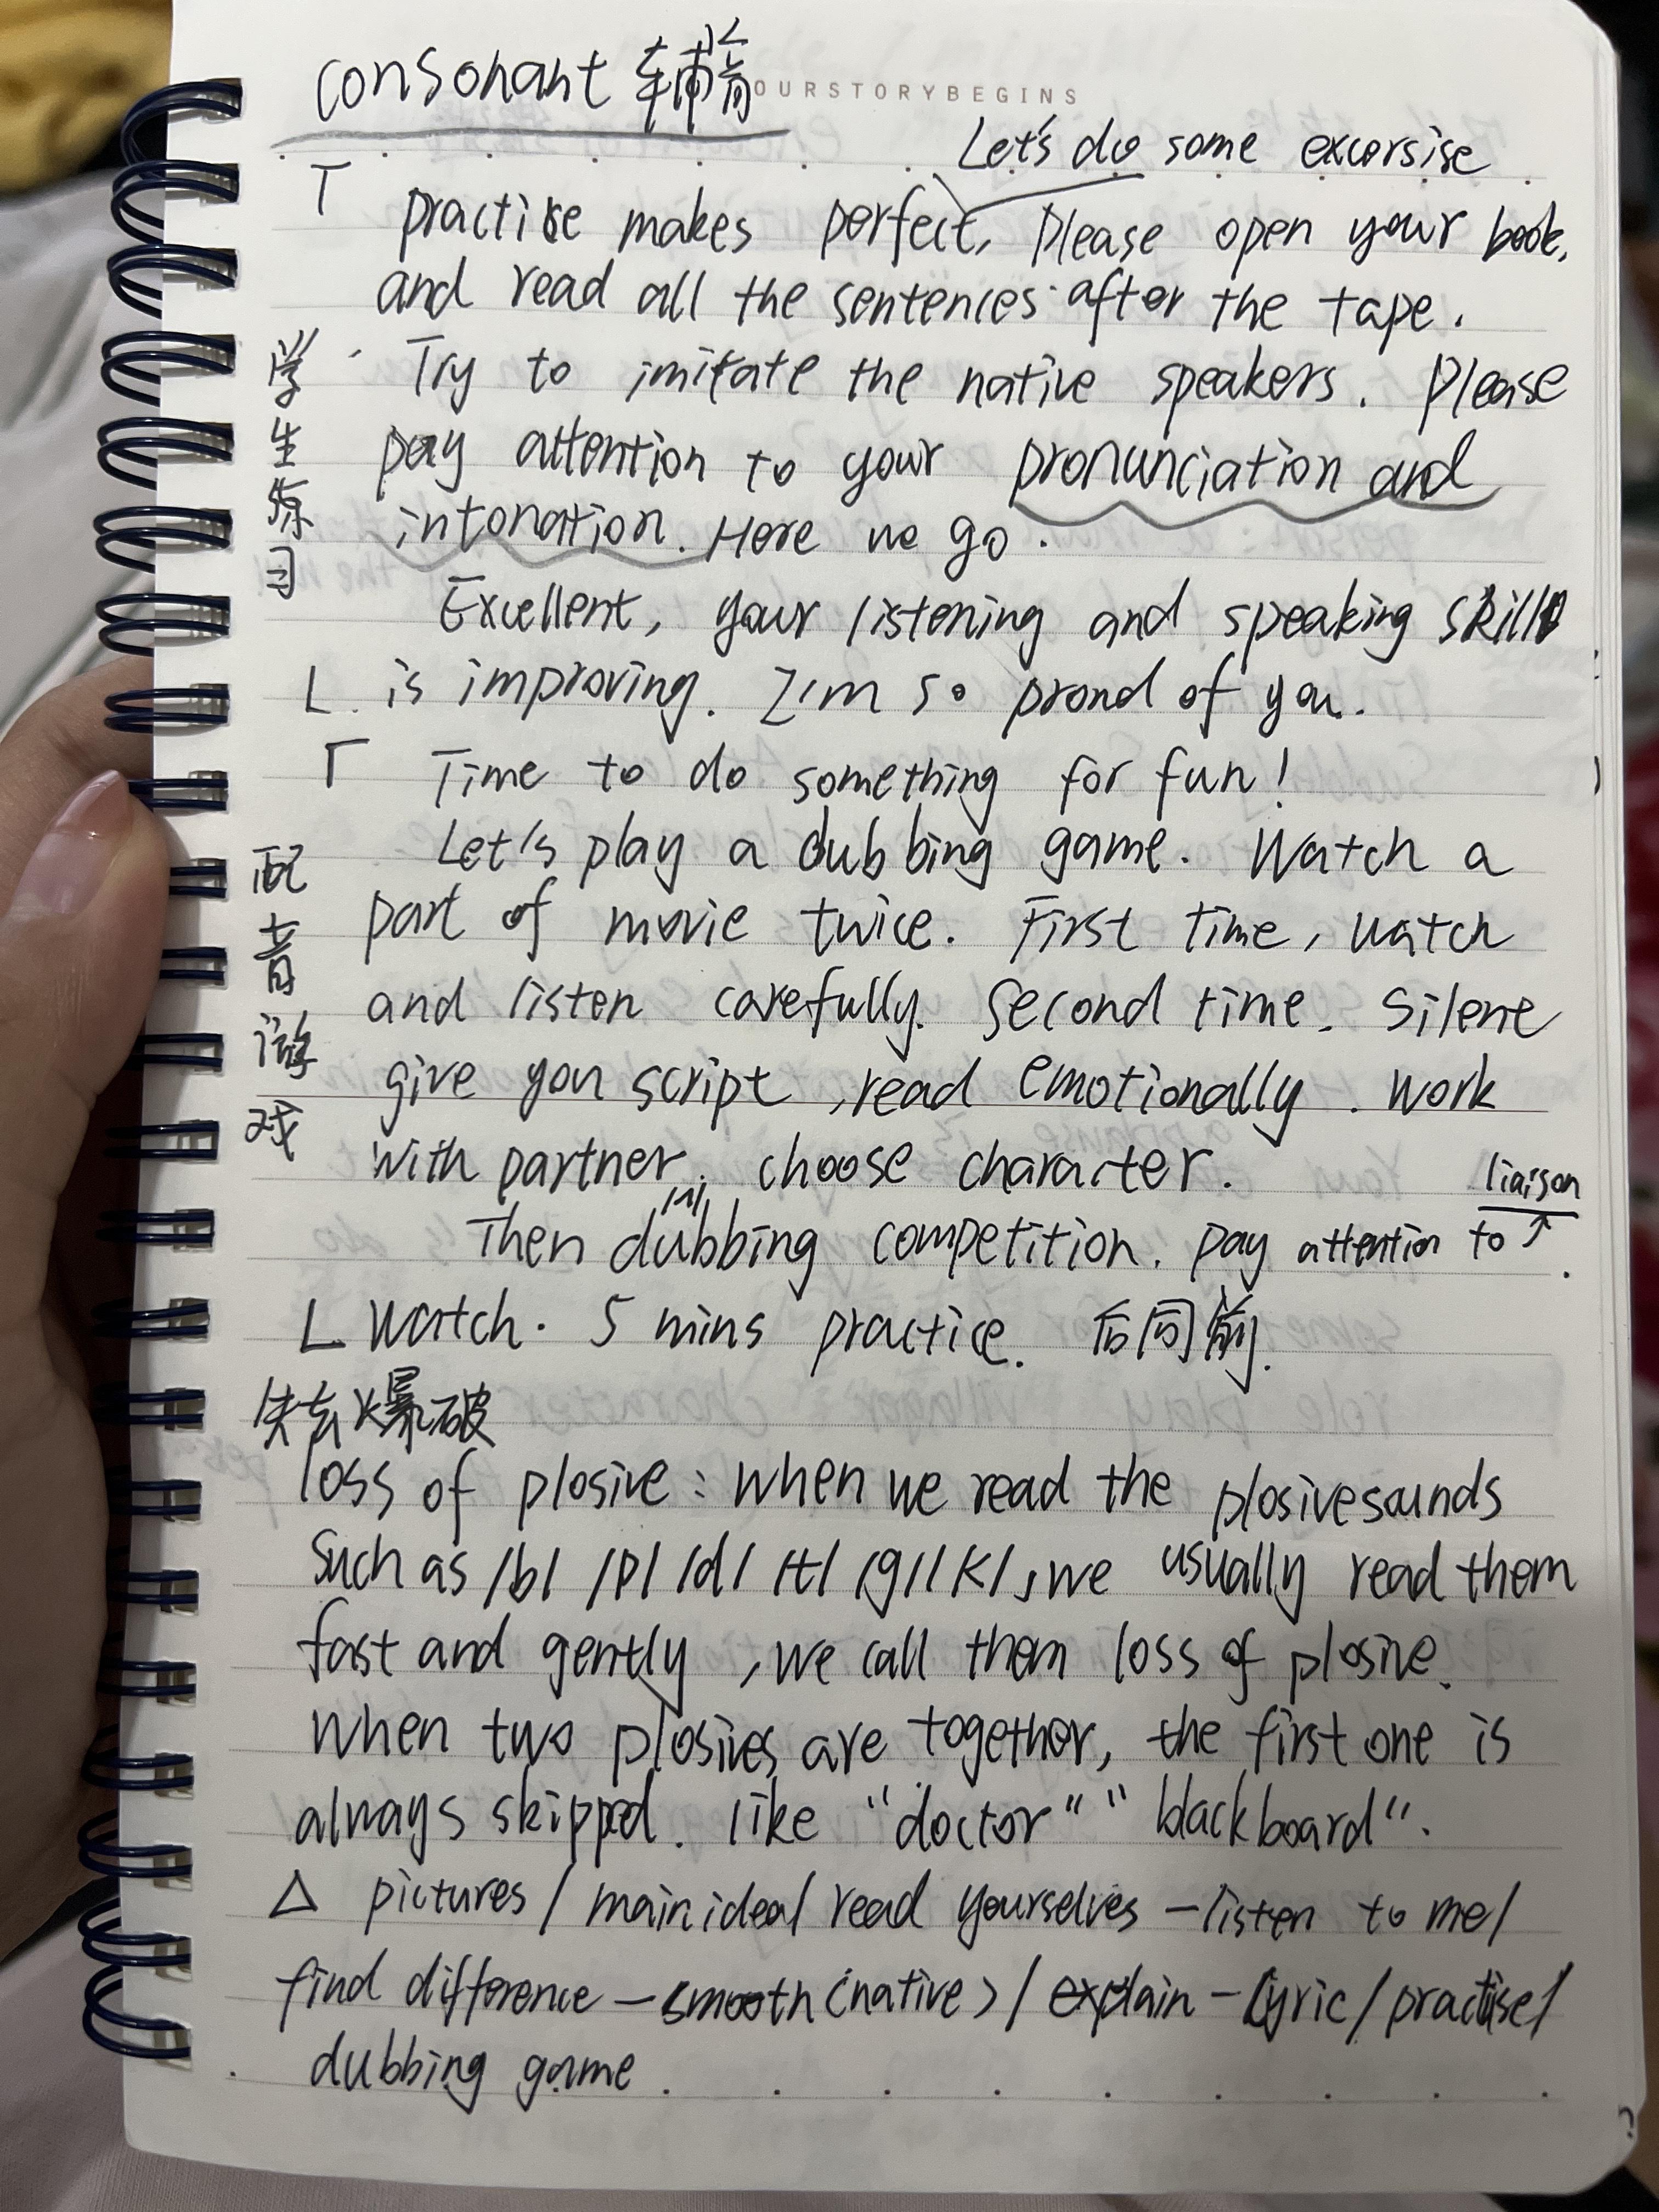 consonant 辅音
OURSTORYBEGINS
Let's do some excersise
practise makes perfect, Please open your book,
and read all the sentences after the tape.
学生练习
Try to imitate the native speakers. Please
pay attention to your pronunciation and
intonation. Here we go.
Excellent, your listening and speaking skill
is improving. I'm so proud of you.
Time to do something for fun!
配音游戏
Let's play a dubbing game. Watch a
part of movie twice. First time, watch
and listen carefully. Second time. Silene
give you script, read emotionally. Work
with partner. choose character.
liaison
/ʌ/
Then dubbing competition. pay attention to ↗.
Watch. 5 mins practice. 后同前.
失去爆破
loss of plosive: when we read the plosive sounds
such as /b/ /p/ /d/ /t/ /g/ /k/, we usually read them
fast and gently, we call them loss of plosive.
When two plosives are together, the first one is
always skipped. like "doctor" "blackboard".
△ pictures / main idea / read yourselves — listen to me /
find difference — smooth (native) / explain — lyric / practise /
dubbing game.